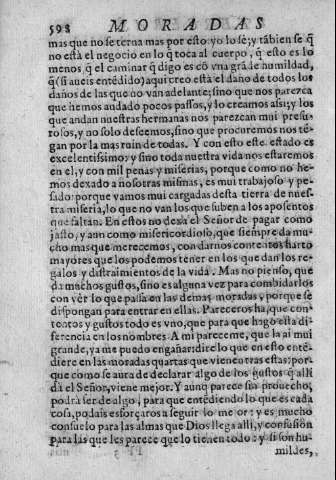 598 MORADAS
mas que no se terna mas por esto: yo lo sé; y tābien se q̄
no està el negocio en lo q̄ toca al cuerpo, q̄ esto es lo
menos, q̄ el caminar q̄ digo es cō vna grā de humildad,
q̄ (si aueis entēdido) aqui creo està el daño de todos los
daños de las que no van adelante; sino que nos parezca
que hemos andado pocos passos, y lo creamos assi; y los
que andan nuestras hermanas nos parezcan mui presu-
rosos, y no solo desseemos, sino que procuremos nos tē-
gan por la mas ruin de todas. Y con esto este estado es
excelentissimo: y sino toda nuestra vida nos estaremos
en el, y con mil penas y miserias, porque como no he-
mos dexado a nosotras mismas, es mui trabajoso y pe-
sado: porque vamos mui cargadas desta tierra de nues-
tra miseria, lo que no van los que suben a los aposentos
que faltan. En estos no dexa el Señor de pagar como
justo, y aun como misericordioso, que siempre da mu-
cho mas que merecemos, con darnos contentos harto
mayores que los podemos tener en los que dan los re-
galos y distraimientos de la vida. Mas no pienso, que
da muchos gustos, sino es alguna vez para combidarlos
con vèr lo que passa en las demas moradas, porque se
dispongan para entrar en ellas. Pareceros ha, que con-
tentos y gustos todo es vno, que para que hago esta di-
ferencia en los nombres. A mi pareceme, que la ai mui
grande, ya me puedo engañar: dire lo que en esto entē-
diere en las moradas quartas que vienen tras estas: por-
que como se aura de declarar algo de los gustos q̄ alli
da el Señor, viene mejor. Y aunq̄ parece sin prouecho,
podrà ser de algo, para que entēdiendo lo que es cada
cosa, podais esforçaros a seguir lo mejor: y es mucho
consuelo para las almas que Dios llega alli, y confusiō
para las que les parece que lo tienen todo: y si son hu-
mildes,